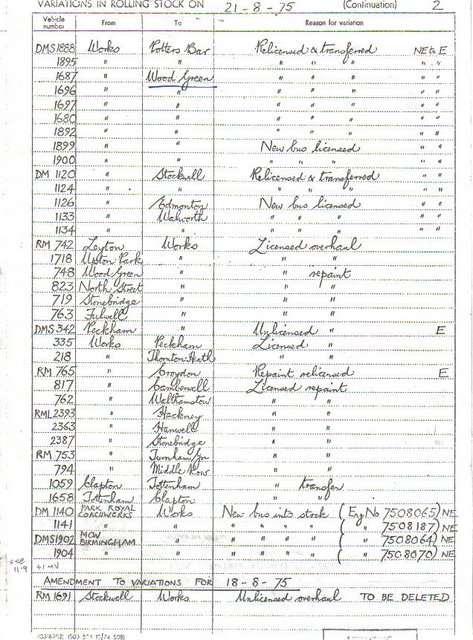 VARIATIONS IN ROLLING STOCK ON 21-8-75 (Continuation) 2
Vehicle number From To Reason for variation
DMS1888 Works Potters Bar Relicensed & transferred NE to E
1895 " " " " " " "
1687 " Wood Green " " " " "
1696 " " " " " " "
1697 " " " " " " "
1680 " " " " " " "
1892 " " " " " " "
1899 " " New bus licensed " "
1900 " " " " " " "
DM 1120 " Stockwell Relicensed & transferred " "
1124 " " " " " " "
1126 " Edmonton New bus licensed " "
1133 " Walworth " " " " "
1134 " " " " " " "
RM 742 Leyton Works Licensed overhaul
1718 Upton Park " " "
748 Wood Green " " repaint
823 North Street " " "
719 Stonebridge " " "
763 Fulwell " " "
DMS 342 Peckham " Unlicensed " E
335 Works Peckham Licensed "
218 " Thornton Heath " "
RM 765 " Croydon Repaint relicensed E
817 " Camberwell Licensed repaint
762 " Walthamstow " "
RML2393 " Hackney " "
2363 " Hanwell " "
2387 " Stonebridge " "
RM 753 " Turnham Gn " "
794 " Middle Row " "
1059 Clapton Tottenham " transfer
1658 Tottenham Clapton " "
DM 1140 PARK ROYAL COACHWORKS Works New bus into stock (Eng No 7508065) NE
1141 " " " " " " ( " 7508187) NE
DMS1902 MCW BIRMINGHAM " " " " " ( " 7508064) NE
1904 " " " " " " ( " 7508070) NE
AMENDMENT TO VARIATIONS FOR 18-8-75
RM 1691 Stockwell Works Unlicensed overhaul TO BE DELETED